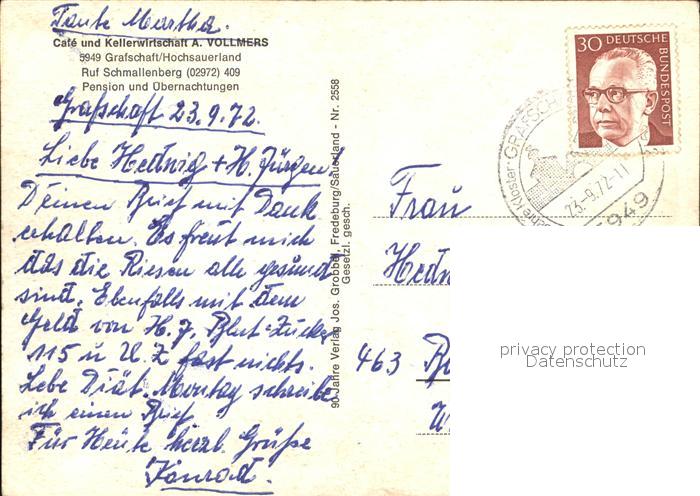 Tante Martha.
Café und Kellerwirtschaft A. VOLLMERS
5949 Grafschaft/Hochsauerland
Ruf Schmallenberg (02972) 409
Pension und Übernachtungen
Grafschaft 23.9.72.
Liebe Hedwig + H. Jürgen
Deinen Brief mit Dank
erhalten. Es freut mich
das die Riesen alle gesund
sind. Ebenfalls mit dem
Geld von H. J. Blut=Zucker
115 u U. Z fast nichts.
Lebe Diät. Montag schreibe
ich einen Brief
Für Heute herzl. Grüße
Konrad.
90 Jahre Verlag Jos. Grobbel, Fredeburg/Sauerland - Nr. 2558
Gesetzl. gesch.
30 DEUTSCHE BUNDESPOST
GRAFSCH
Jahre Kloster
23.-9.72-11
5949
Frau
Hedw
463
privacy protection
Datenschutz